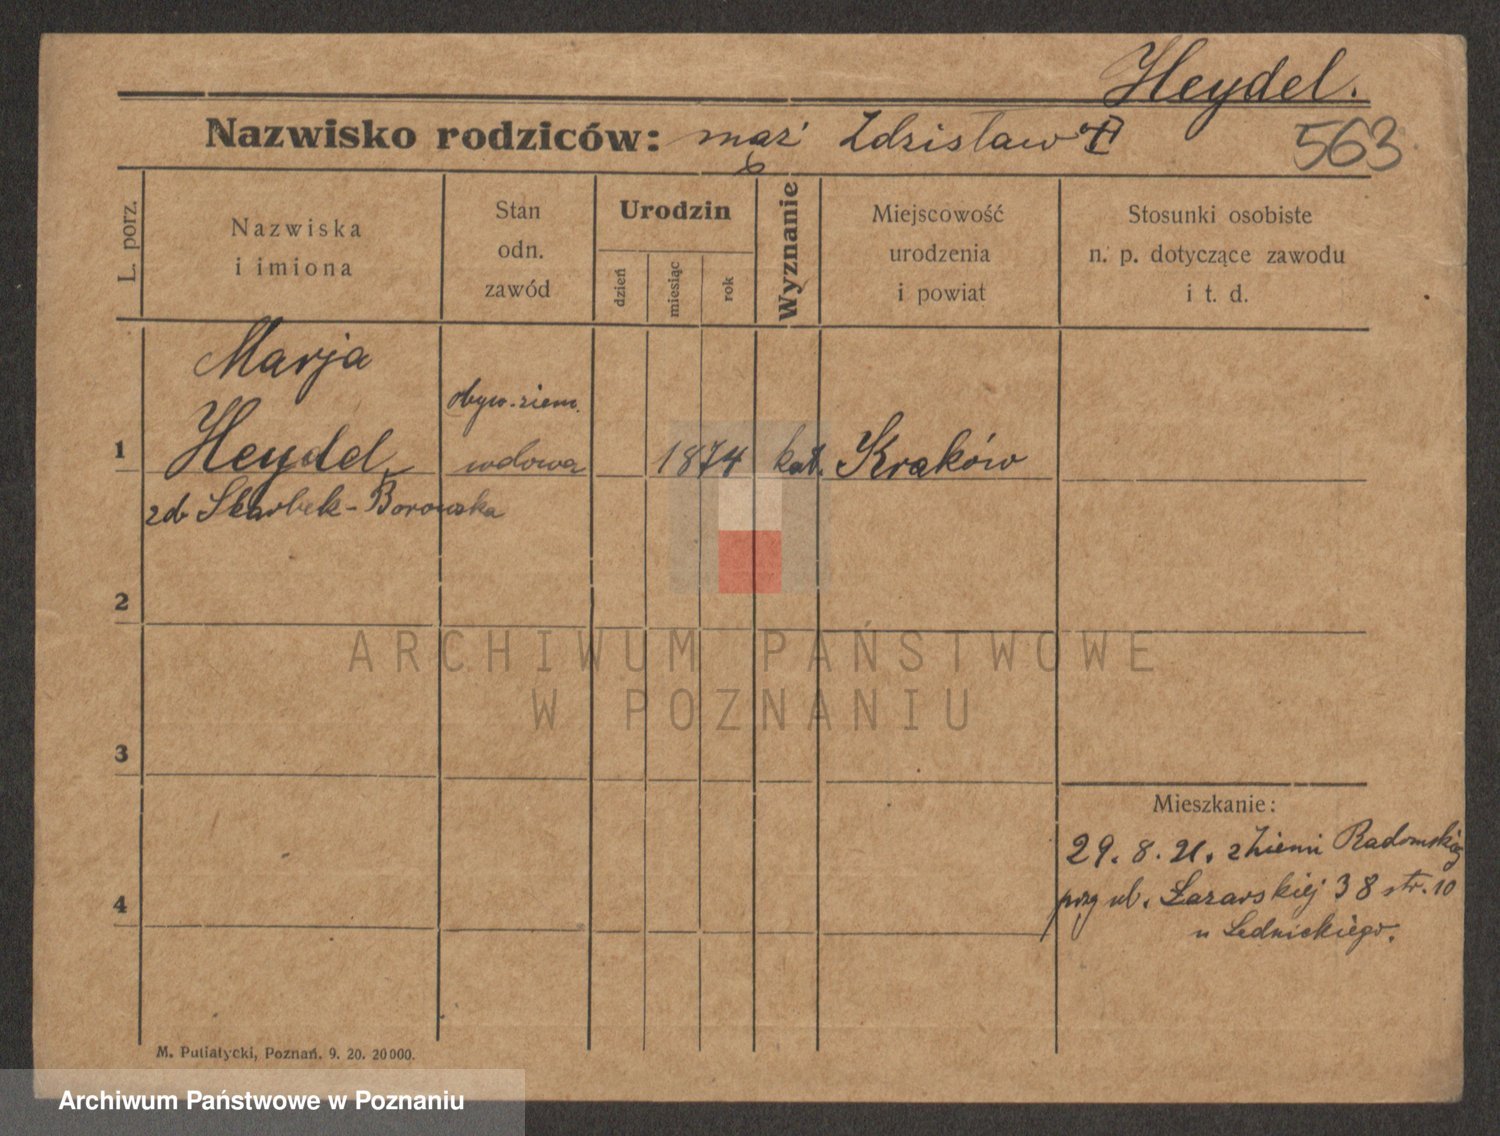 Heydel.
Nazwisko rodziców: mąż Zdzisław
563
L. porz.
Nazwiska
i imiona
Stan
odn.
zawód
Urodzin
dzień
miesiąc
rok
Wyznanie
Miejscowość
urodzenia
i powiat
Stosunki osobiste
n. p. dotyczące zawodu
i t. d.
Marja
obyw. ziem.
1 Heydel wdowa 1874 kat. Kraków
zd Skarbek-Borowska
2
ARCHIWUM PAŃSTWOWE
W POZNANIU
3
Mieszkanie:
29. 8. 21. z Ziemi Radomskiej
przy ul. Łazarskiej 38 str. 10
4
u Lednickiego.
M. Putiatycki, Poznań. 9. 20. 20000.
Archiwum Państwowe w Poznaniu